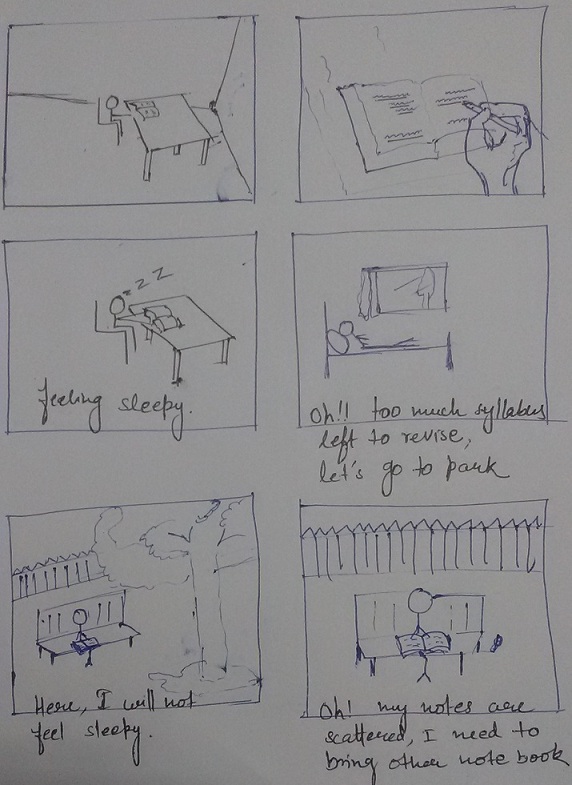 z z z
feeling sleepy.
Oh!! too much syllabus
left to revise,
let's go to park
Here, I will not
feel sleepy.
Oh! my notes are
scattered, I need to
bring other note book